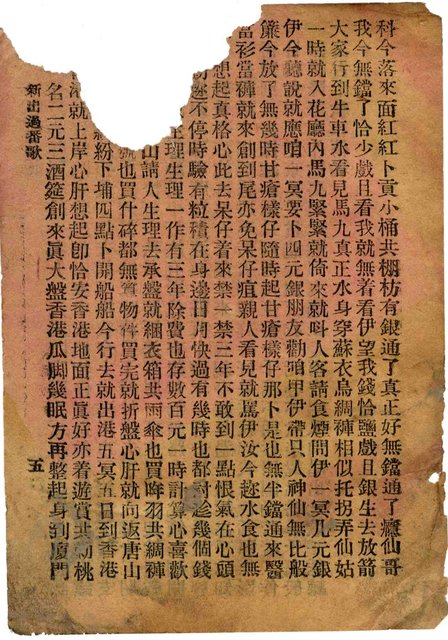 科今落來面紅紅卜貢小桶共棚枋有銀通了真正好無鐺通了癮仙哥
我今無鐺了恰少戲且看我就無着看伊望我錢恰鹽戲且銀生去放箭
大家行到牛車水看見馬九真正水身穿蘇衣烏綢褲相似托拐弄仙姑
一時就入花廳內馬九緊緊就倚來就叫人客請食煙問伊一冥几元銀
伊今聽說就應咱一冥要卜四元銀朋友勸咱甲伊帶只人神仙無比般
簾今放了無幾時甘瘡樣仔隨時起甘瘡樣仔那卜是也無半鐺通來醫
當彩當褲就來創到尾亦免呆仔疽親人看見就罵伊汝今趂水食也無
想起真格心此去呆仔着來禁一禁三年不敢到一點恨氣在心頭
趂不停時驗有粒積在身邊日月快過有幾時也都討趁幾個錢
理生理一作有三年除費也存數百元一時計算心喜歡
山請人生理去承盤就綑衣箱共雨傘也買哖羽共綢褲
號也買什碎都無物件買完就折盤心肝就向返唐山
紛下埔四點卜開船船今行去就出港五冥五日到香港
港就上岸心肝想起即恰安香港地面正真好亦着遊賞共勅桃
名二元三酒筵創來眞大盤香港瓜脚幾眠方再整起身到厦門
新出過番歌
五